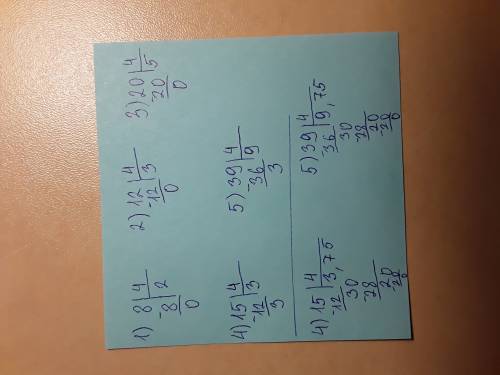 1) 8 | 4 2) 12 | 4 3) 20 | 4
-8 | 2 -12 | 3 20 | 5
0 0 0
4) 15 | 4 5) 39 | 4
-12 | 3 -36 | 9
3 3
4) 15 | 4 5) 39 | 4
-12 | 3,75 -36 | 9,75
30 30
-28 -28
20 20
-20 -20
0 0